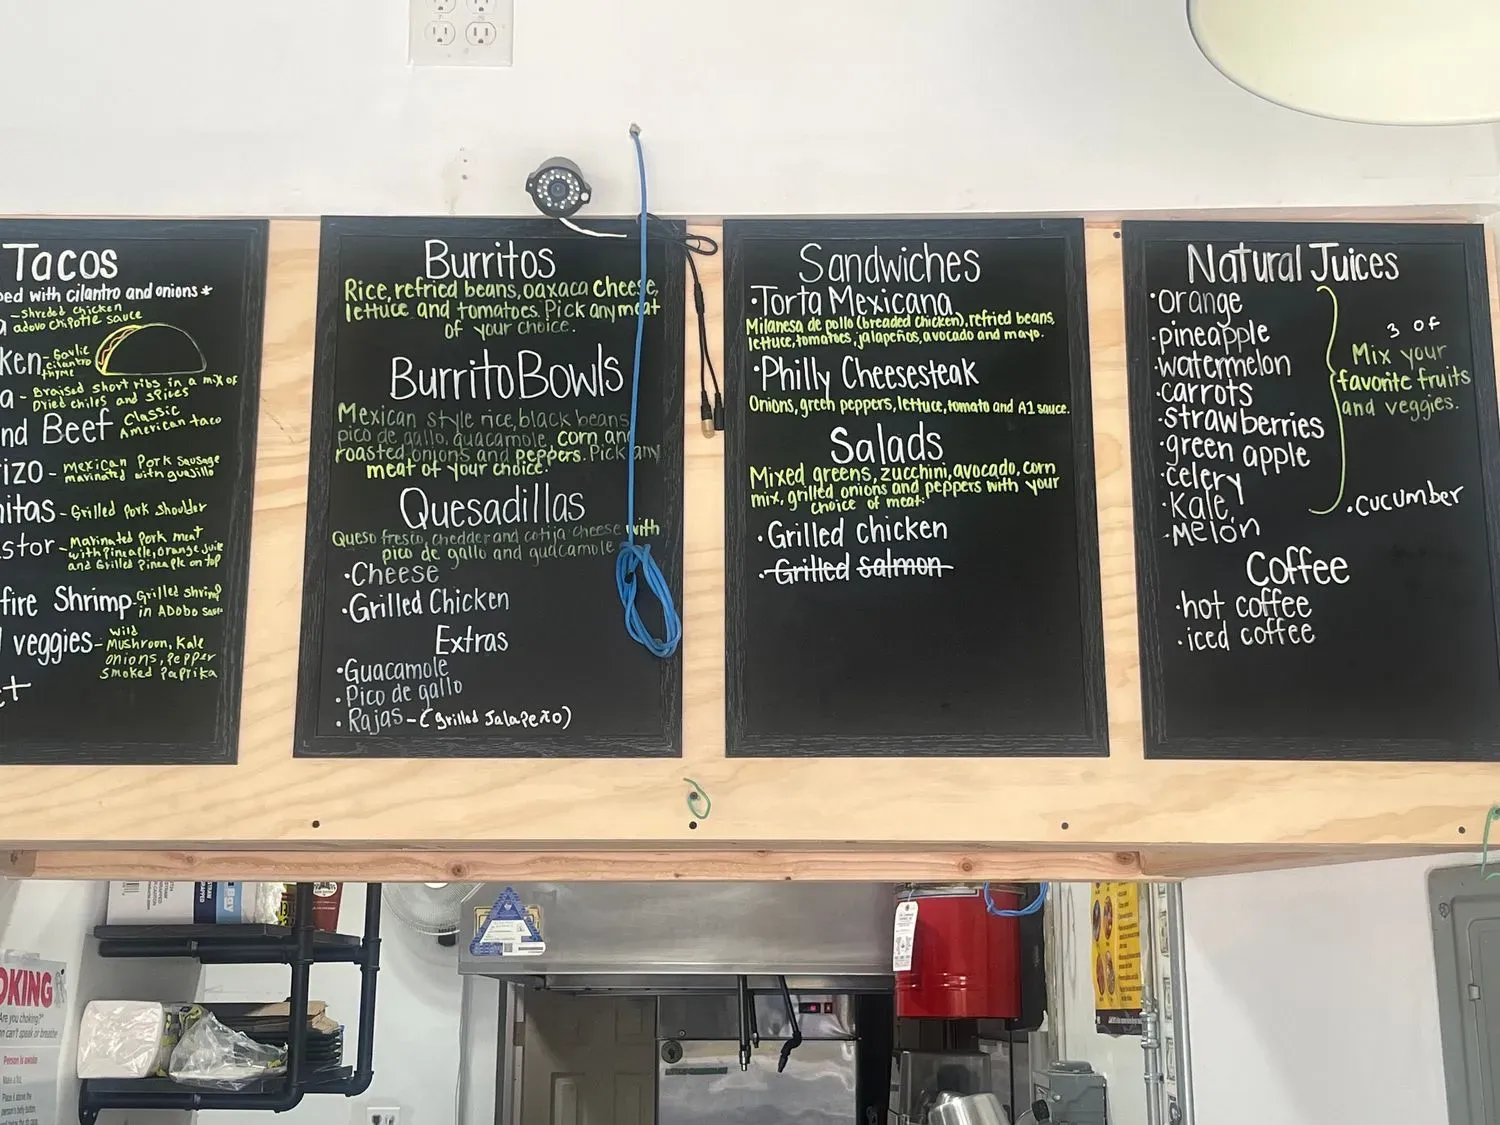 Tacos
ped with cilantro and onions*
a - Shreded chicken
adovo chipotle sauce
ken - Garlic
cilantro
thyme
a - Braised short ribs in a mix of
Dried chiles and spices
nd Beef Classic
American taco
izo - Mexican Pork sausage
marinated with guajillo
nitas - Grilled Pork shoulder
stor - Marinated Pork meat
with pineaple, orange juice
and Grilled Pineaple on top
fire Shrimp - Grilled shrimp
in Adobo sauce
veggies - Wild
Mushroom, Kale
onions, pepper
smoked paprika
Burritos
Rice, refried beans, oaxaca cheese,
lettuce and tomatoes. Pick any meat
of your choice.
Burrito Bowls
Mexican style rice, black beans
pico de gallo, guacamole, corn and
roasted onions and peppers. Pick any
meat of your choice.
Quesadillas
Queso fresco, chedder and cotija cheese with
pico de gallo and guacamole
·Cheese
·Grilled Chicken
Extras
·Guacamole
·Pico de gallo
·Rajas - (grilled Jalapeño)
Sandwiches
·Torta Mexicana
Milanesa de pollo (breaded chicken), refried beans,
lettuce, tomatoes, jalapeños, avocado and mayo.
·Philly Cheesesteak
Onions, green peppers, lettuce, tomato and A1 sauce.
Salads
Mixed greens, zucchini, avocado, corn
mix, grilled onions and peppers with your
choice of meat.
·Grilled chicken
·Grilled Salmon
Natural Juices
·orange
·pineapple
·watermelon
·carrots
·strawberries
·green apple
·celery
·Kale,
·Melon
3 of
Mix your
favorite fruits
and veggies.
·cucumber
Coffee
·hot coffee
·iced coffee
OKING
Are you choking?"
n can't speak or breathe
Person is awake